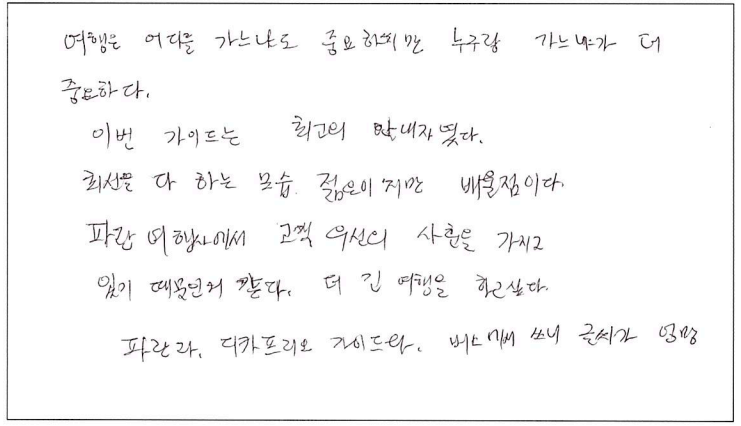 여행은 어디를 가느냐도 중요하지만 누구랑 가느냐가 더
중요하다.
이번 가이드는 최고의 안내자였다.
최선을 다 하는 모습 젊은이지만 배울점이다.
파란 여행사에서 고객 우선의 사훈을 가지고
있기 때문인거 같다. 더 긴 여행을 하고싶다.
파란과, 디카프리오 가이드와. 버스에서 쓰니 글씨가 엉망